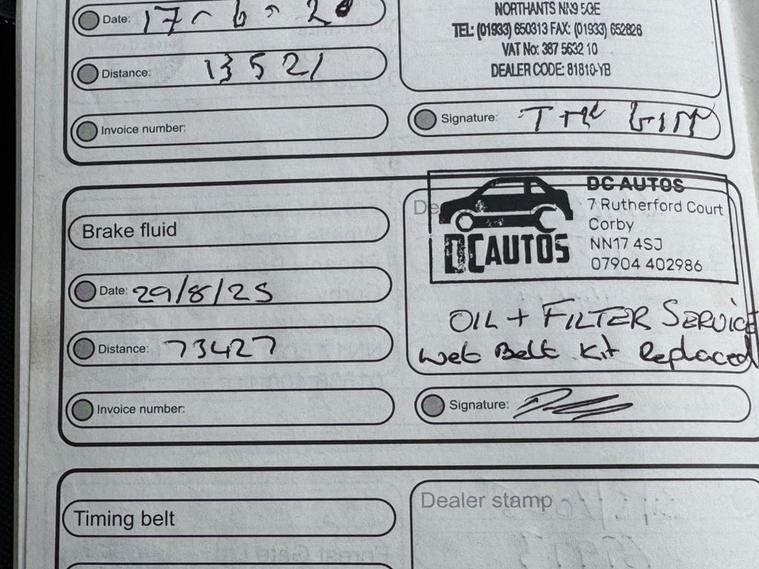 Date: 17-6-20
NORTHANTS NN9 5GE
TEL: (01933) 650313 FAX: (01933) 652826
VAT No: 387 5632 10
DEALER CODE: 81810-YB
Distance: 13521
Invoice number:
Signature:
DC AUTOS
7 Rutherford Court
Corby
NN17 4SJ
07904 402986
DC AUTOS
De
Brake fluid
Date: 29/8/25
Distance: 73427
OIL + FILTER SERVICE
Wet Belt Kit Replaced
Invoice number:
Signature:
Timing belt
Dealer stamp